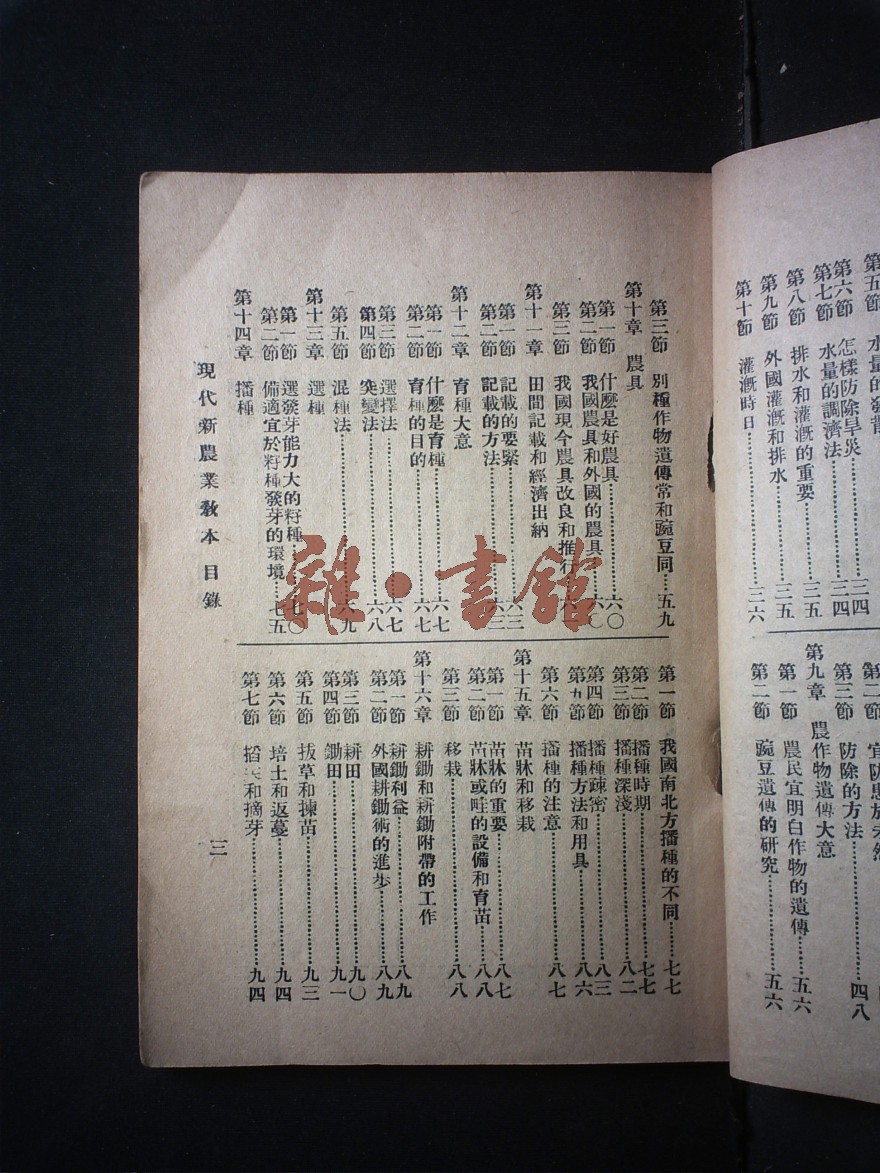 第五節 水量的發散
第六節 怎樣防除旱災……三四
第七節 水量的調濟法……三四
第八節 排水和灌漑的重要……三五
第九節 外國灌漑和排水……三五
第十節 灌漑時日……三六
第二節 宜防患於未然
第三節 防除的方法……四八
第九章 農作物遺傳大意
第一節 農民宜明白作物的遺傳……五六
第二節 豌豆遺傳的研究……五六
第三節 別種作物遺傳常和豌豆同……五九
第十章 農具
第一節 什麼是好農具……六〇
第二節 我國農具和外國的農具……六〇
第三節 我國現今農具改良和推行……六
第十一章 田間記載和經濟出納
第一節 記載的要緊……六三
第二節 記載的方法……六三
第十二章 育種大意
第一節 什麼是育種……六七
第二節 育種的目的……六七
第三節 選擇法……六七
第四節 突變法……六八
第五節 混種法……六九
第十三章 選種
第一節 選發芽能力大的籽種……七〇
第二節 備適宜於籽種發芽的環境……七五
第十四章 播種
第一節 我國南北方播種的不同……七七
第二節 播種時期……七七
第三節 播種深淺……八二
第四節 播種疎密……八三
第五節 播種方法和用具……八六
第六節 播種的注意……八七
第十五章 苗牀和移栽
第一節 苗牀的重要……八七
第二節 苗牀或畦的設備和育苗……八八
第三節 移栽……八八
第十六章 耕鋤和耕鋤附帶的工作
第一節 耕鋤利益……八九
第二節 外國耕鋤術的進步……八九
第三節 耕田……九〇
第四節 鋤田……九一
第五節 拔草和揀苗……九三
第六節 培土和返蔓……九四
第七節 和摘芽……九四
現代新農業敎本 目錄
三
雜·書館